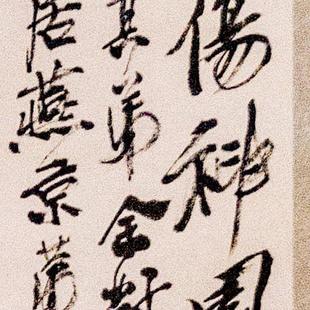 傷神園
其弟金
居燕京蒲